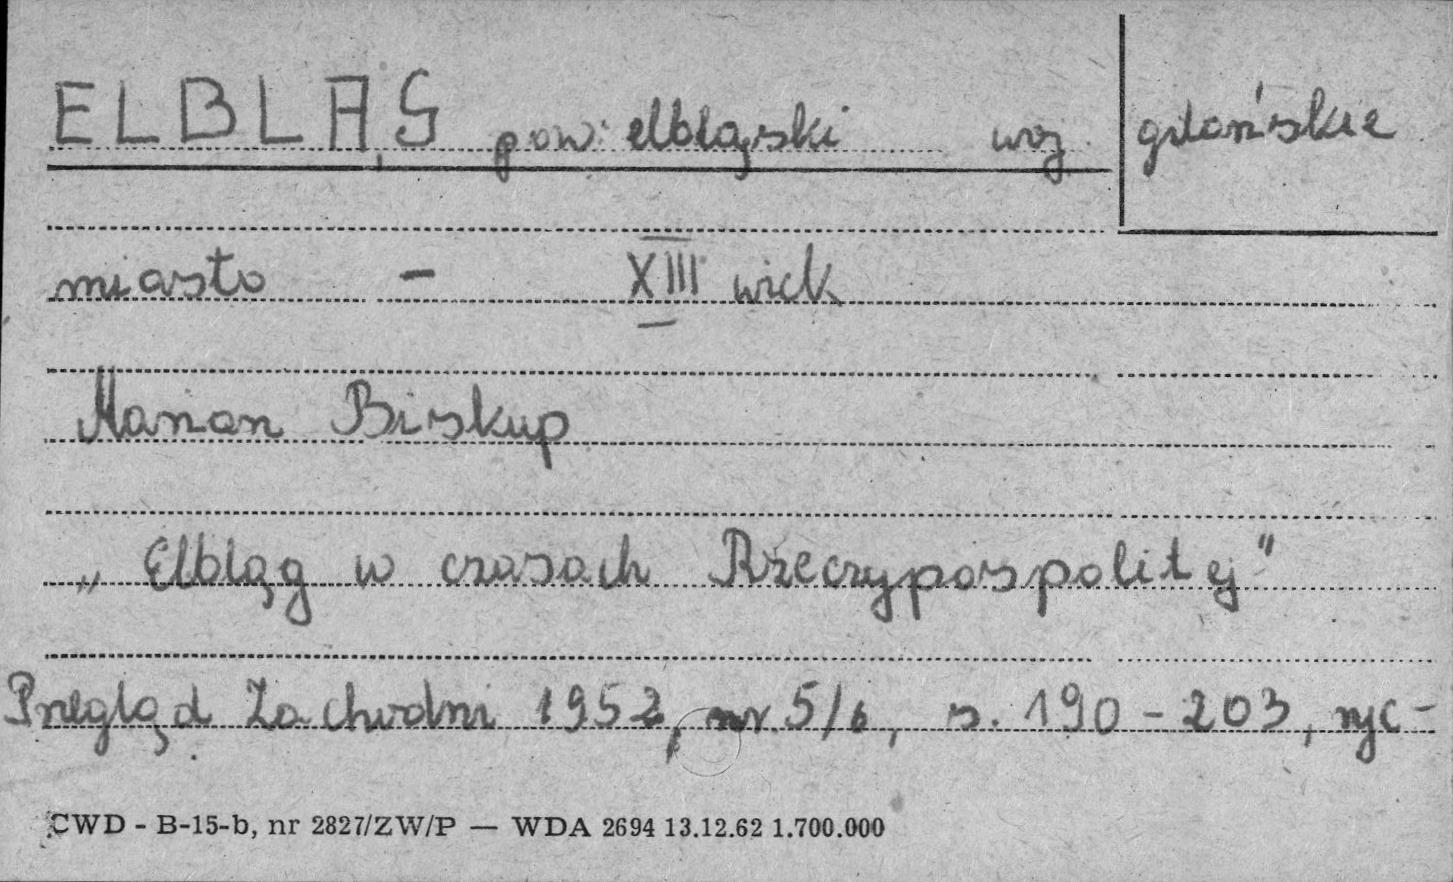 ELBLĄG pow. elbląski woj. gdańskie
miasto - XIII wiek
Marian Biskup
„Elbląg w czasach Rzeczypospolitej"
Przegląd Zachodni 1952, nr. 5/6, s. 190-203, ryc-
CWD - B-15-b, nr 2827/ZW/P — WDA 2694 13.12.62 1.700.000